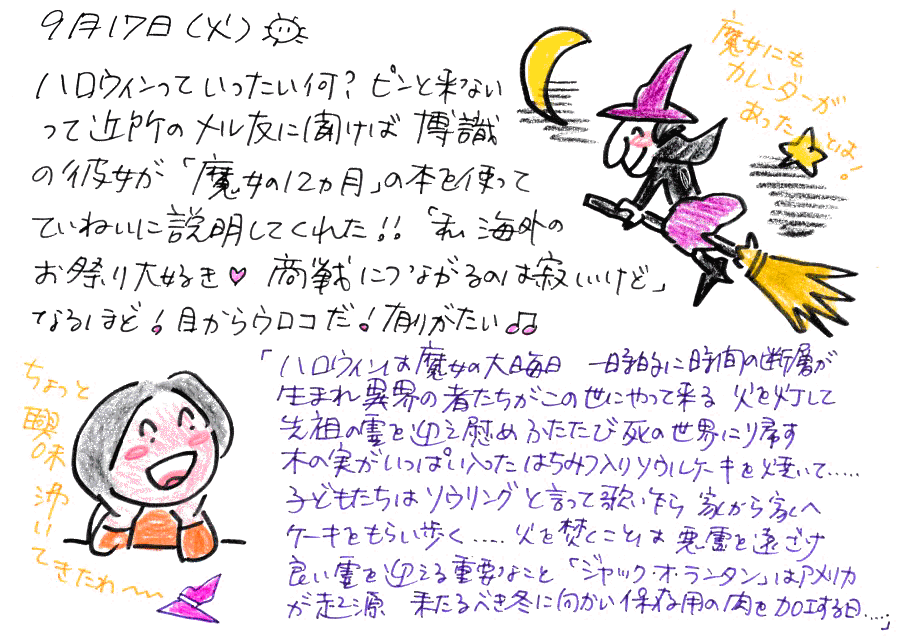 9月17日(火)
魔女にも
カレンダーが
あったとは!
ハロウィンっていったい何? ピンと来ない
って近所のメル友に聞けば 博識
の彼女が「魔女の12ヵ月」の本を使って
ていねいに説明してくれた!!「私 海外の
お祭り大好き♥ 商戦につながるのは寂しいけど」
なるほど!目からウロコだ!有りがたい♫
ちょっと
興味
沸い
てきたわ〜〜
「ハロウィンは魔女の大晦日 一時的に時間の断層が
生まれ異界の者たちがこの世にやって来る 火を灯して
先祖の霊を迎え慰め ふたたび死の世界に帰す
木の実がいっぱい入った はちみつ入りソウルケーキを焼いて.....
子どもたちはソウリングと言って歌いながら 家から家へ
ケーキをもらい歩く..... 火を焚くことは 悪霊を遠ざけ
良い霊を迎える重要なこと 「ジャック・オ・ランタン」はアメリカ
が起源 来たるべき冬に向かい保存用の肉を加工する日.....」